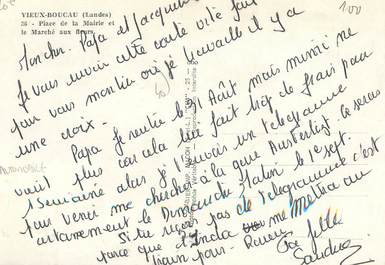 VIEUX-BOUCAU (Landes)
26 - Place de la Mairie et
le Marché aux fleurs.
100
Papa et Jacqueline
Je vous envoie cette carte vite fait
pour vous montrer où je travaille il y a
une croix.
Papa je rentre le 31 Août mais mimi ne
veut plus car cela me fait trop de frais pour
1 semaine alors je t'envois un telegramme
pour venir me chercher à la gare Austerlitz. Ce seras
certainement le Dimanche Matin le 1er sept.
Si tu reçois pas de telegramme c'est
parce que me mettra au
train pour Paris
Ta fille